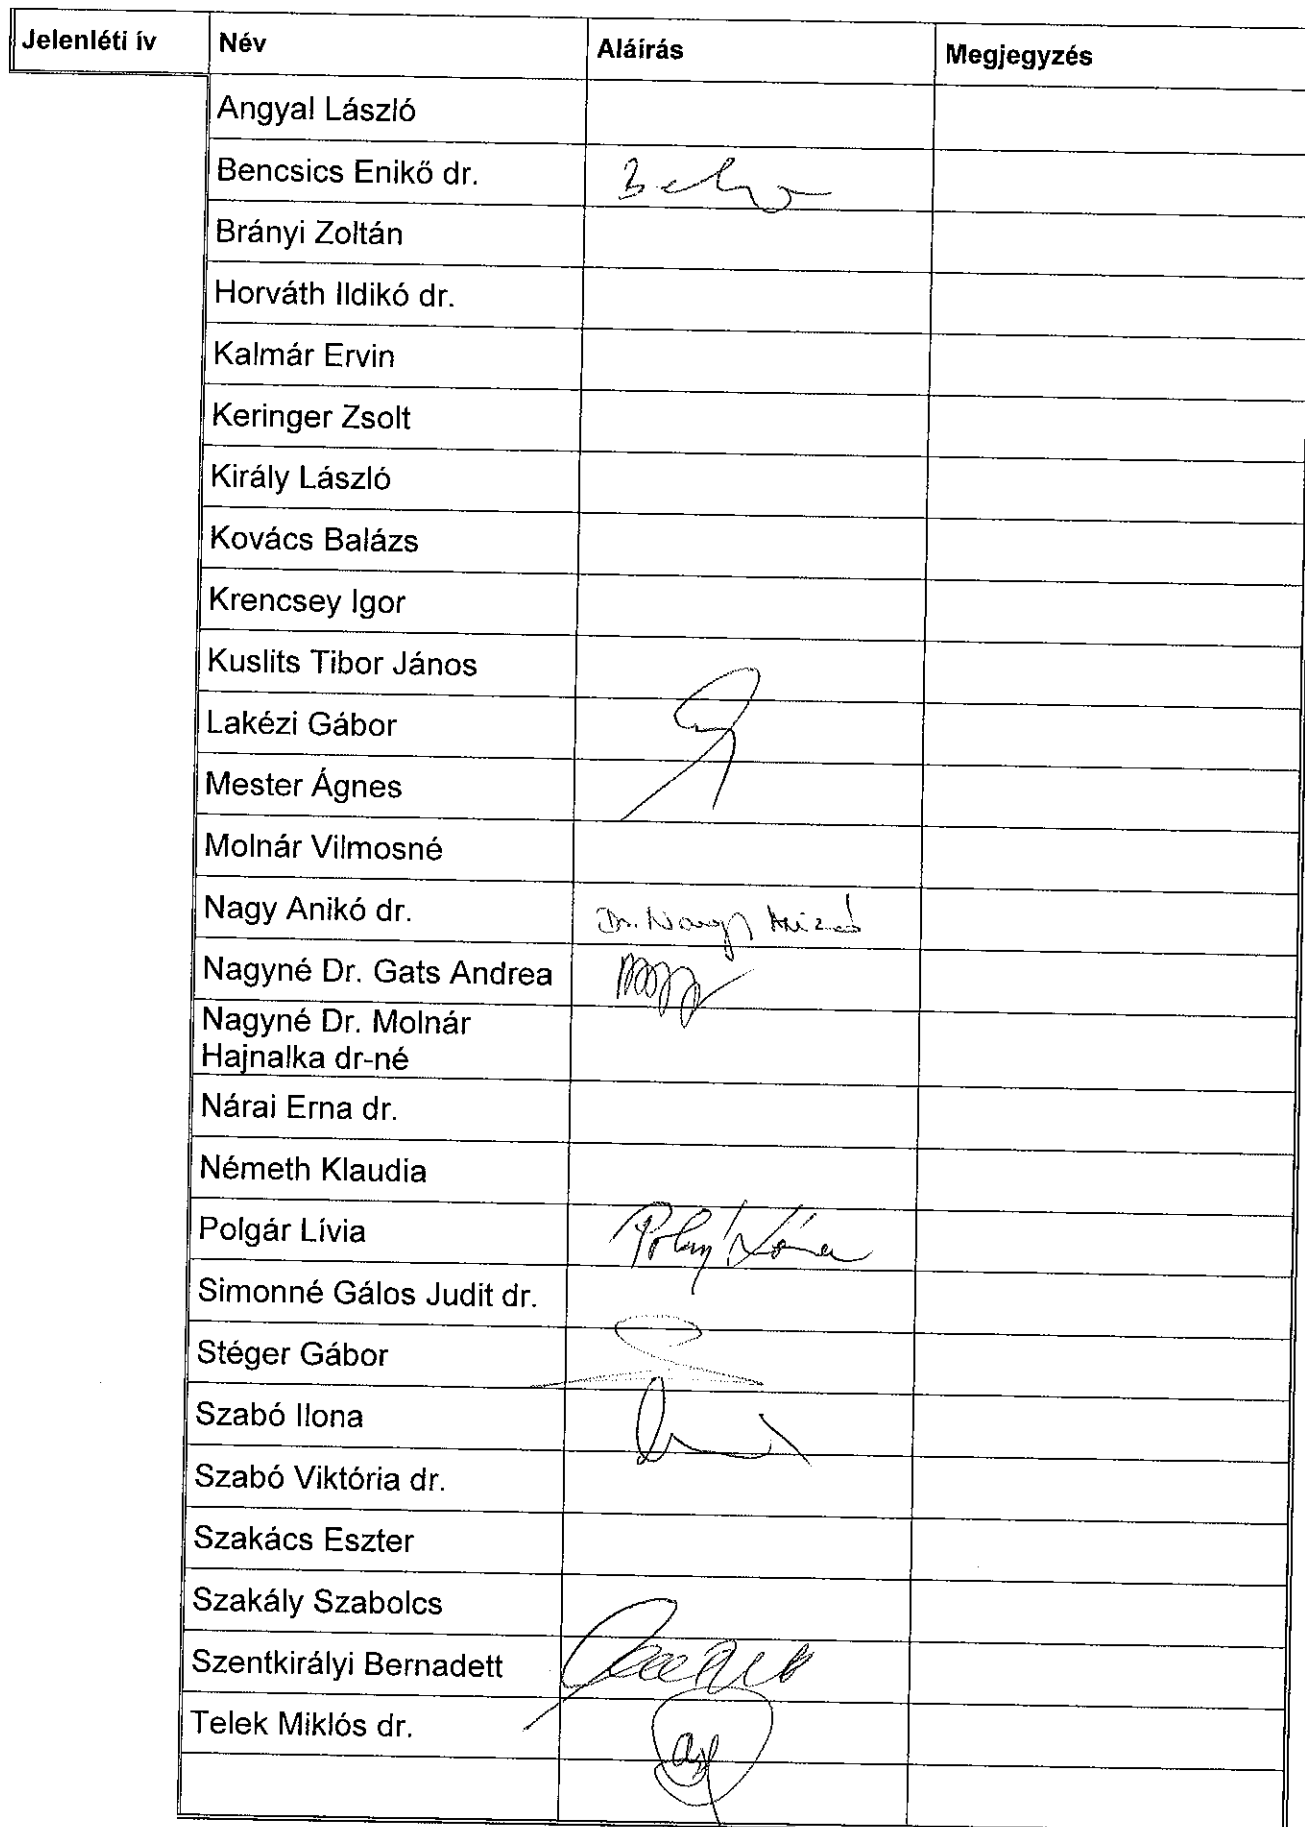 Jelenléti ív Név Aláírás Megjegyzés
Angyal László
Bencsics Enikő dr.
Brányi Zoltán
Horváth Ildikó dr.
Kalmár Ervin
Keringer Zsolt
Király László
Kovács Balázs
Krencsey Igor
Kuslits Tibor János
Lakézi Gábor
Mester Ágnes
Molnár Vilmosné
Nagy Anikó dr. Dr. Nagy Anikó
Nagyné Dr. Gats Andrea
Nagyné Dr. Molnár
Hajnalka dr-né
Nárai Erna dr.
Németh Klaudia
Polgár Lívia
Simonné Gálos Judit dr.
Stéger Gábor
Szabó Ilona
Szabó Viktória dr.
Szakács Eszter
Szakály Szabolcs
Szentkirályi Bernadett
Telek Miklós dr.